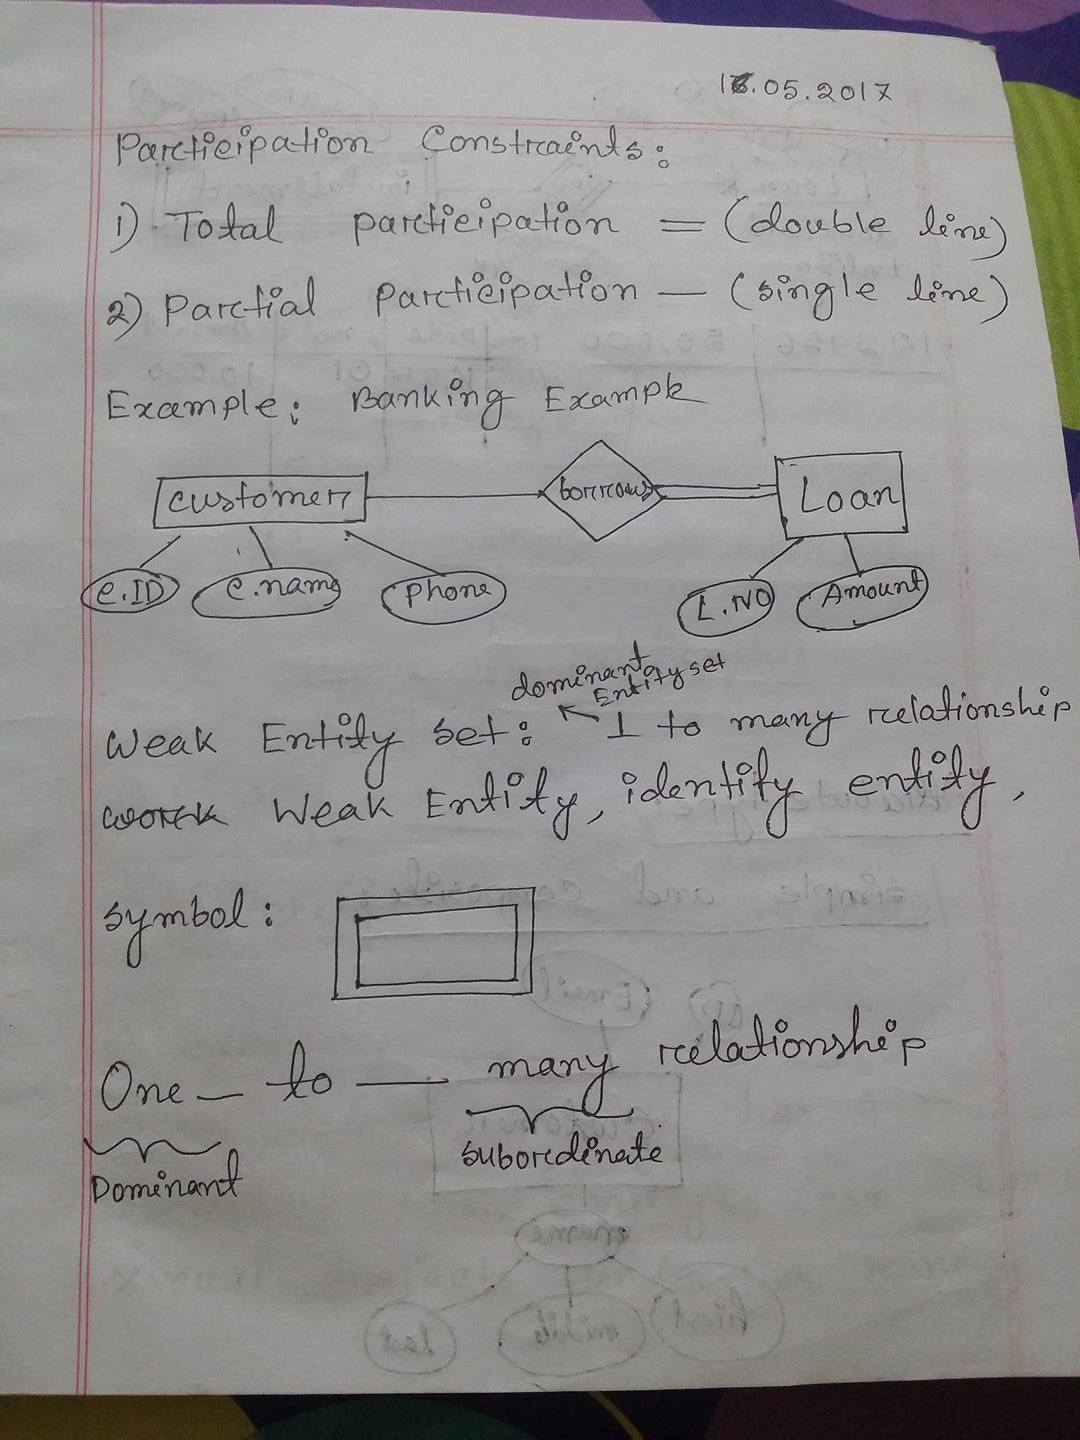 16.05.2017
Participation Constraints:
1) Total participation = (double line)
2) Partial Participation — (single line)
Example: Banking Example
customer borrows Loan
c.ID c.name Phone L.NO Amount
dominant
Entity set
Weak Entity set: 1 to many relationship
Weak Entity, identify entity,
symbol:
One — to — many relationship
Dominant subordinate